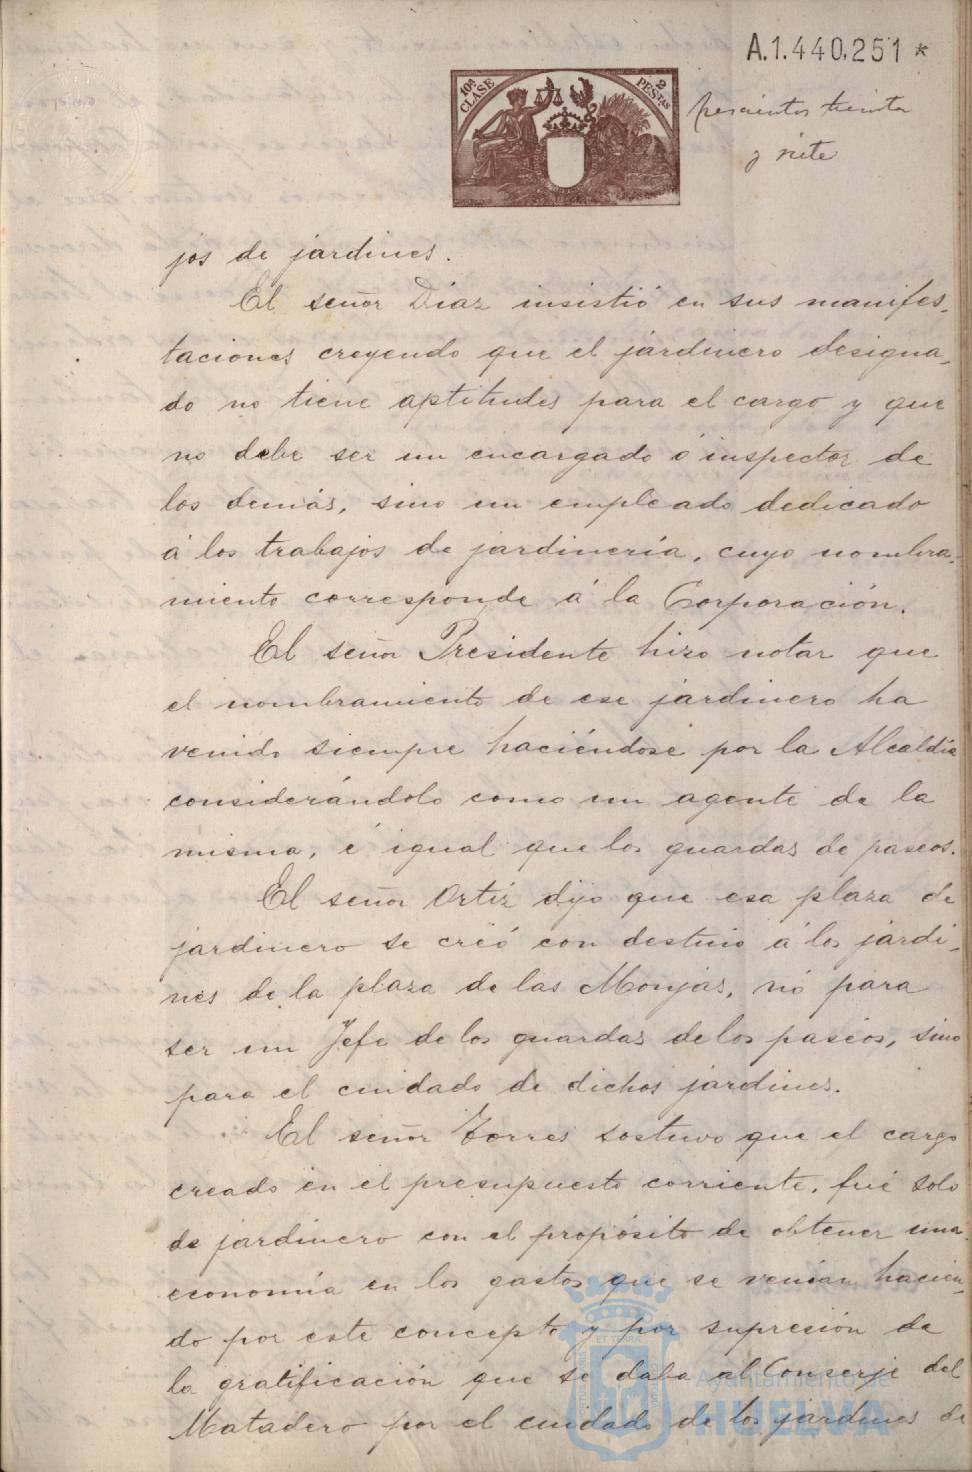 A.1.440.251 *
10ª CLASE
2 PESETAS
trescientos treinta
y siete
jos de jardines.
El señor Díaz insistió en sus manifes-
taciones creyendo que el jardinero designa-
do no tiene aptitudes para el cargo y que
no debe ser un encargado ó inspector de
los demás, sino un empleado dedicado
á los trabajos de jardinería, cuyo nombra-
miento corresponde á la Corporación.
El señor Presidente hizo notar que
el nombramiento de ese jardinero ha
venido siempre haciéndose por la Alcaldía
considerándolo como un agente de la
misma, é igual que los guardas de paseos.
El señor Ortiz dijo que esa plaza de
jardinero se creó con destino á los jardi-
nes de la plaza de las Monjas, nó para
ser un Jefe de los guardas de los paseos, sino
para el cuidado de dichos jardines.
El señor Torres sostuvo que el cargo
creado en el presupuesto corriente, fué solo
de jardinero con el propósito de obtener una
economía en los gastos que se venían hacien-
do por este concepto y por supresión de
la gratificación que se daba al Conserje del
Matadero por el cuidado de los jardines de
Ayuntamiento de
HUELVA